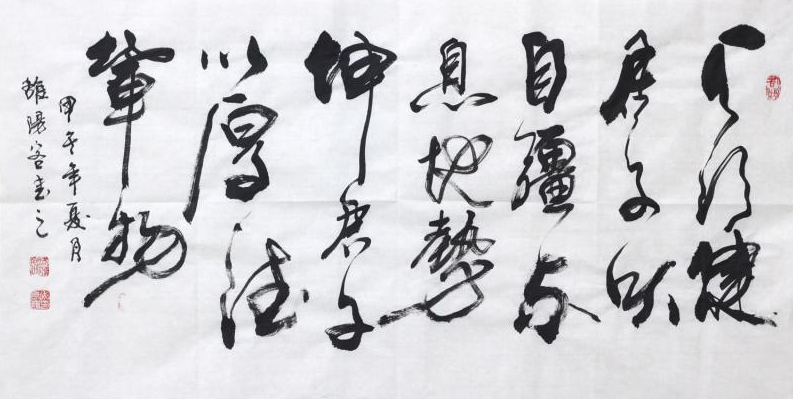 天行健
君子以
自彊不
息地勢
坤君子
以厚德
載物
甲午年夏月
雒陽客書之